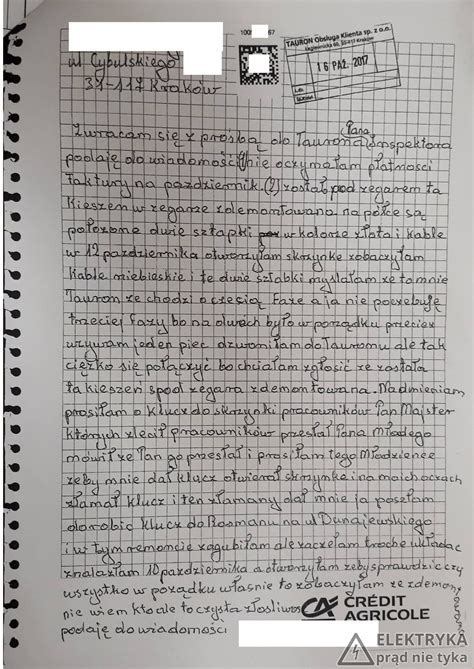 ul Cybulskiego
31-117 Kraków
TAURON Obsługa Klienta sp. z o.o.
16 PAŹ. 2017
Zwracam się z prośbą do Taurona Pana Inspektora
podaję do wiadomości (1) nie oczymałam płatności
faktury na pazdziernik. (2) został pod zegarem ta
kieszeń w zegarze zdemontowana na półce są
położone dwie sztapki w kolorze złota i kable
w 12 pazdziernika otworzyłam skrzynke zobaczyłam
kable niebieskie i te dwie sztabki myslałam ze to mnie
Tauron ze chodzi o czecią faze a ja nie poczebuję
trzeciej fazy bo na dwóch było w porządku przeciez
uzywam jeden piec dzwoniłam do Tauronu ale tak
ciężko się połączyć bo chciałam zgłosić ze została
ta kieszeń spod zegara zdemontowana. Nadmieniam
prosiłam o klucz do skrzynki pracowników Pan Majster
których zlecił pracowników przesłał Pana młodego
mówił ze Pan go przesłał i prosiłam tego Młodzience
zeby mnie dał klucz otwierał skrzynke i na moich oczach
złamał klucz i ten złamany dał mnie ja poszłam
dorobic klucz do Rosmanu na ul Dunajewskiego
i w tym momcie zagubiłam ale zaczełam troche układac
znalazłam 10 pazdziernika a otworzyłam zeby sprawdzic czy
wszystko w porządku własnie to zobaczyłam ze zdemon
nie wiem kto ale to czysta złosliwos
podaję do wiadomości
CRÉDIT
AGRICOLE
ELEKTRYKA
prąd nie tyka